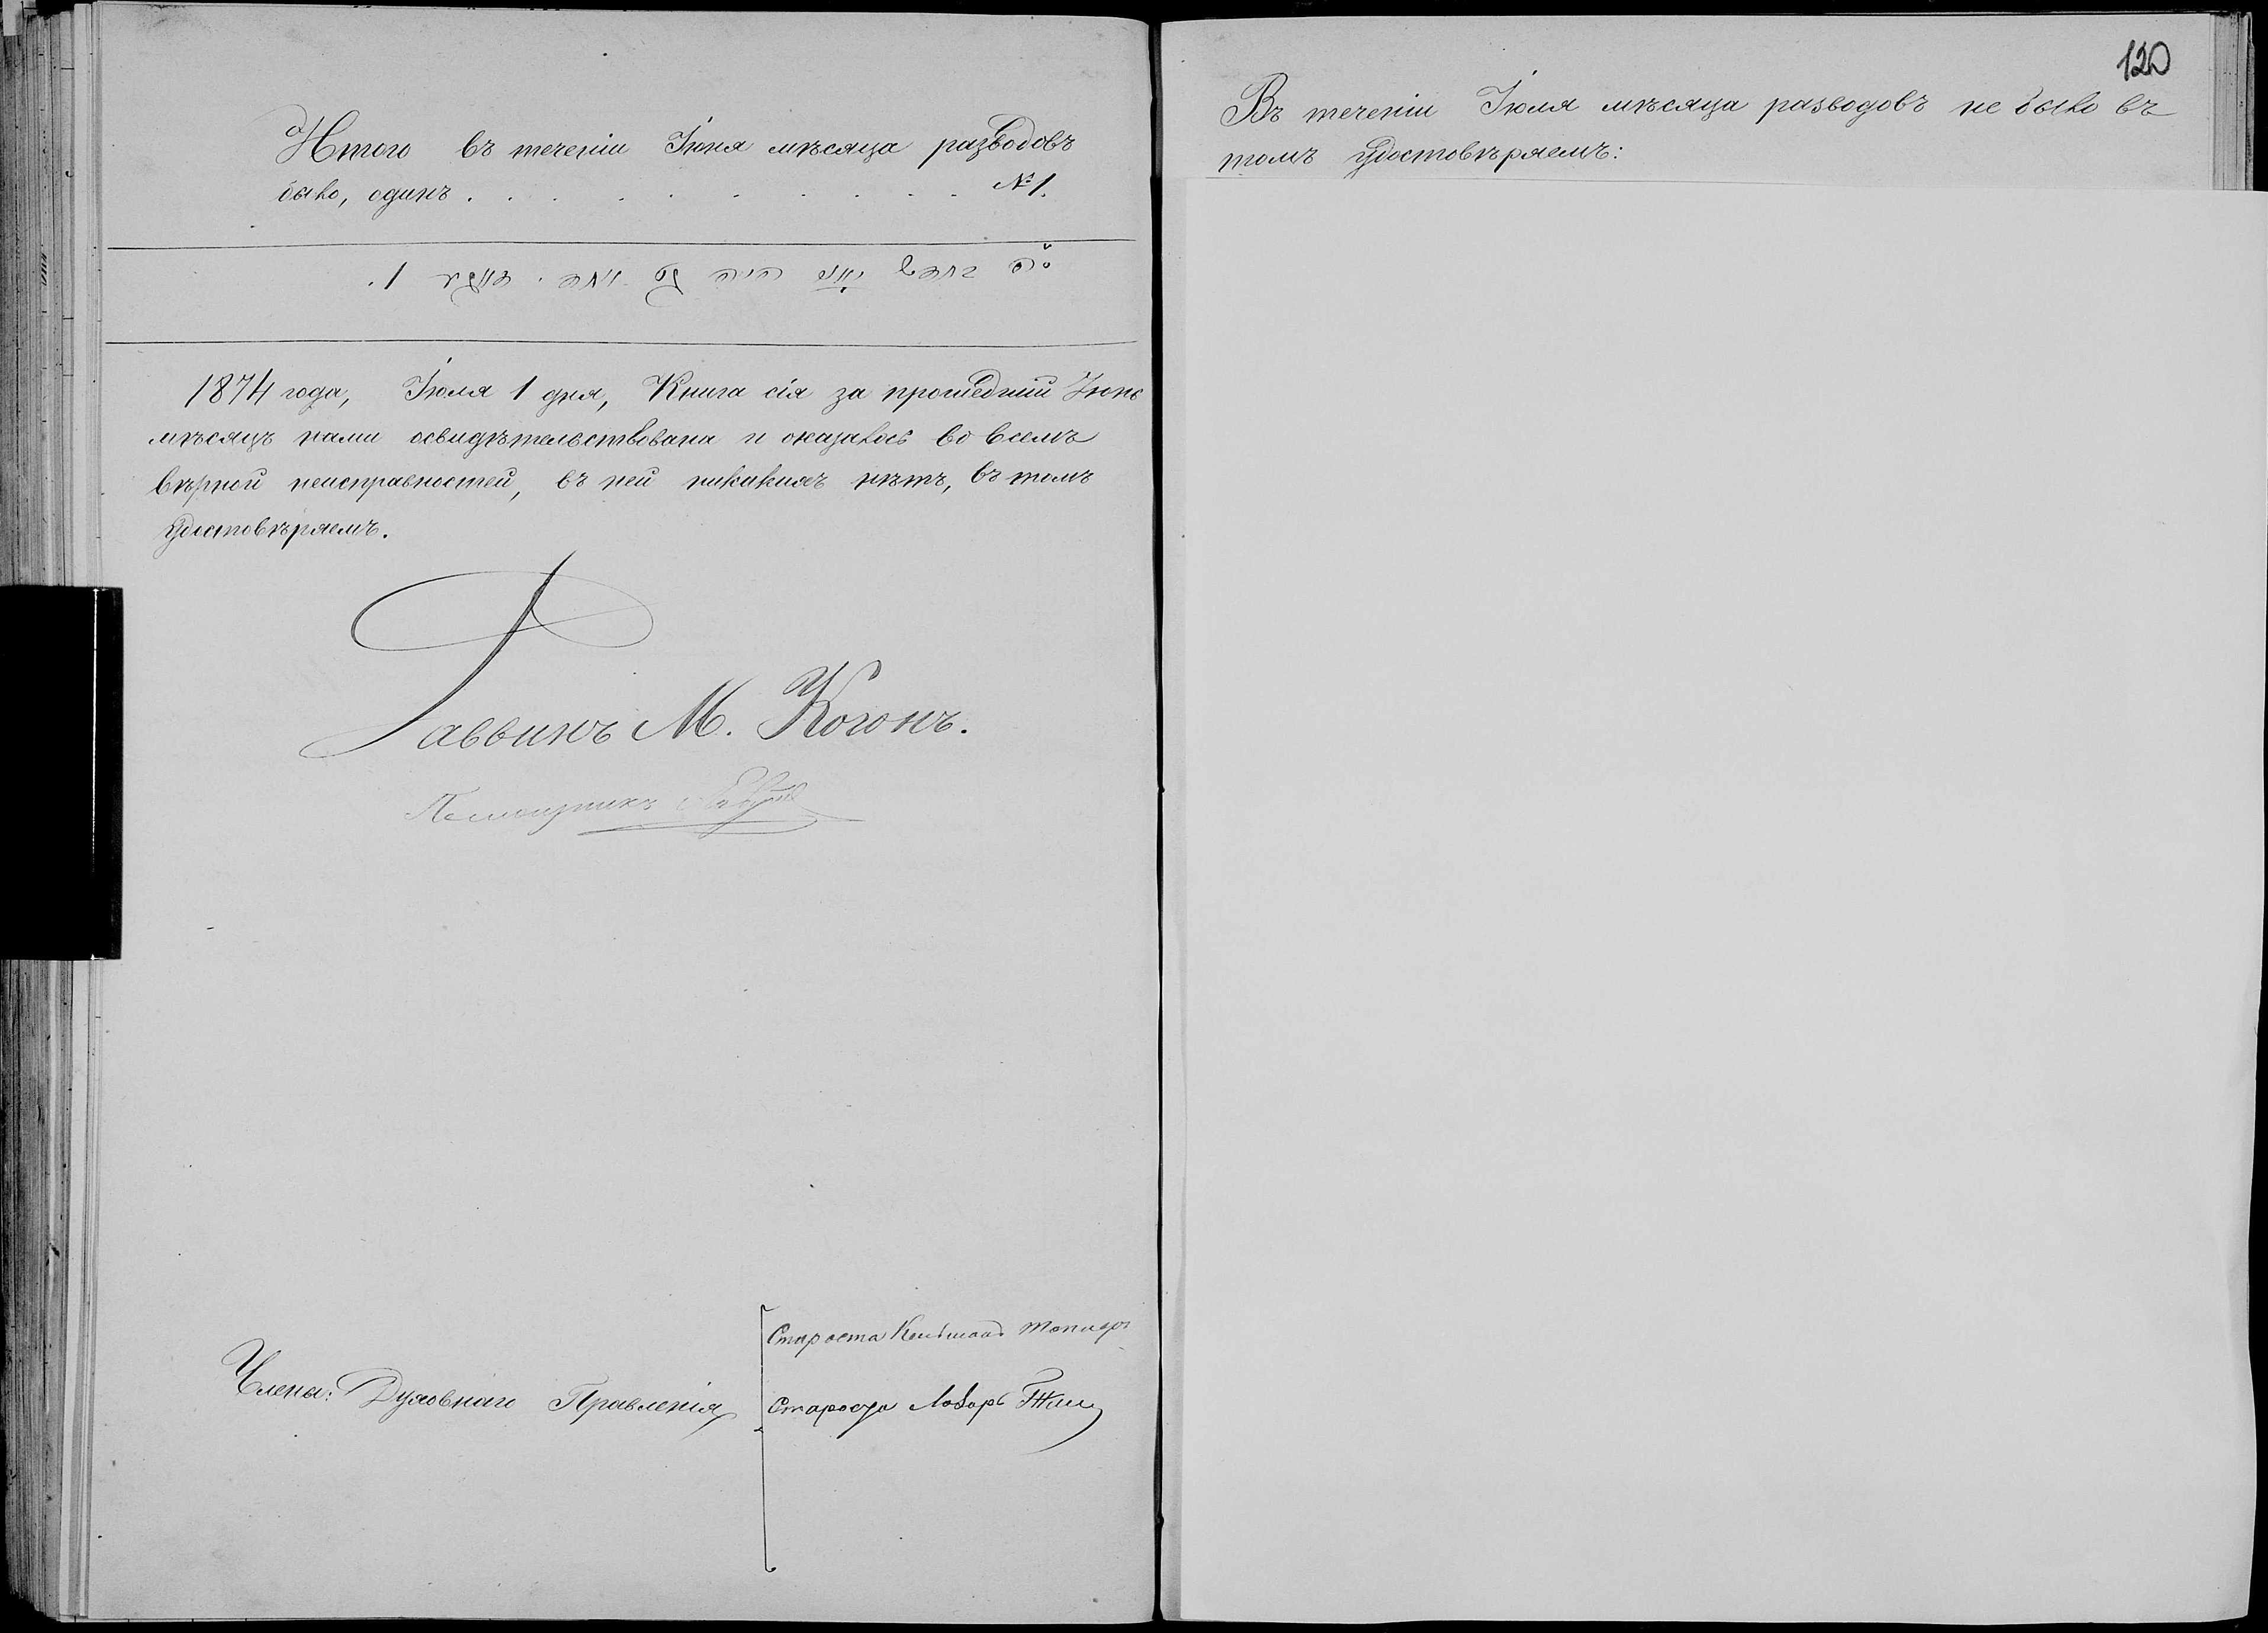 Итого въ теченіи Іюня мѣсяца разводовъ
было, одинъ . . . . . . . . . . №1.
1874 года, Іюля 1 дня, Книга сія за прошедшій Іюнь
мѣсяцъ нами освидѣтельствована и оказалось во всемъ
вѣрной неисправностей, въ ней никакихъ нѣтъ, въ томъ
удостовѣряемъ.
Раввинъ М. Когонъ.
Помощникъ
Члены: Духовнаго Правленія
Староста
Староста Лазарь
120
Въ теченіи Іюля мѣсяца разводовъ не было въ
томъ удостовѣряемъ: